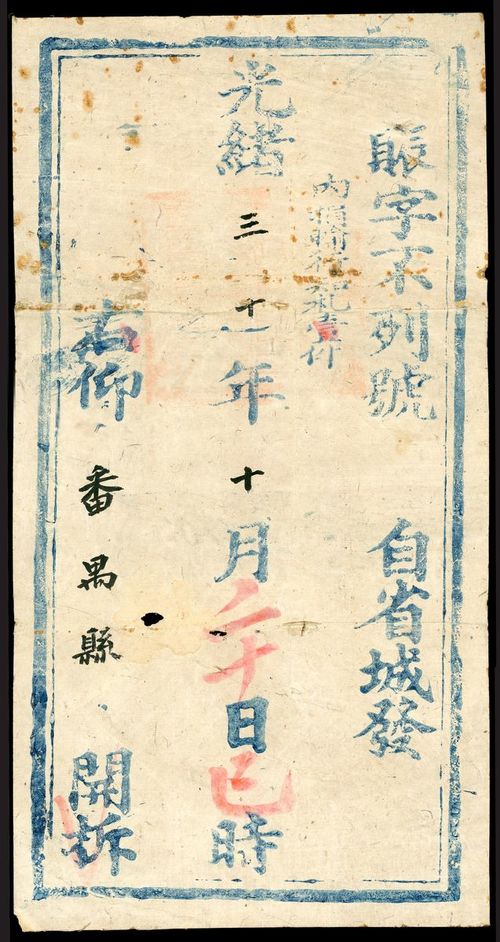 賑字不列號 自省城發
內 壹件
光緒三十一年十月二十日巳時
右仰番禺縣開拆